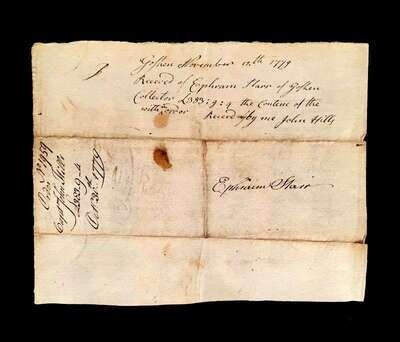 Goshen November 12th 1779
Recevd of Ephraim Starr of Goshen
Collector £383:9:4 the Contene of the
within order Recevd by me John Hills
Ephraim Starr
Order No 1959
Capt John Hills
£383.9.4
Octr 1779